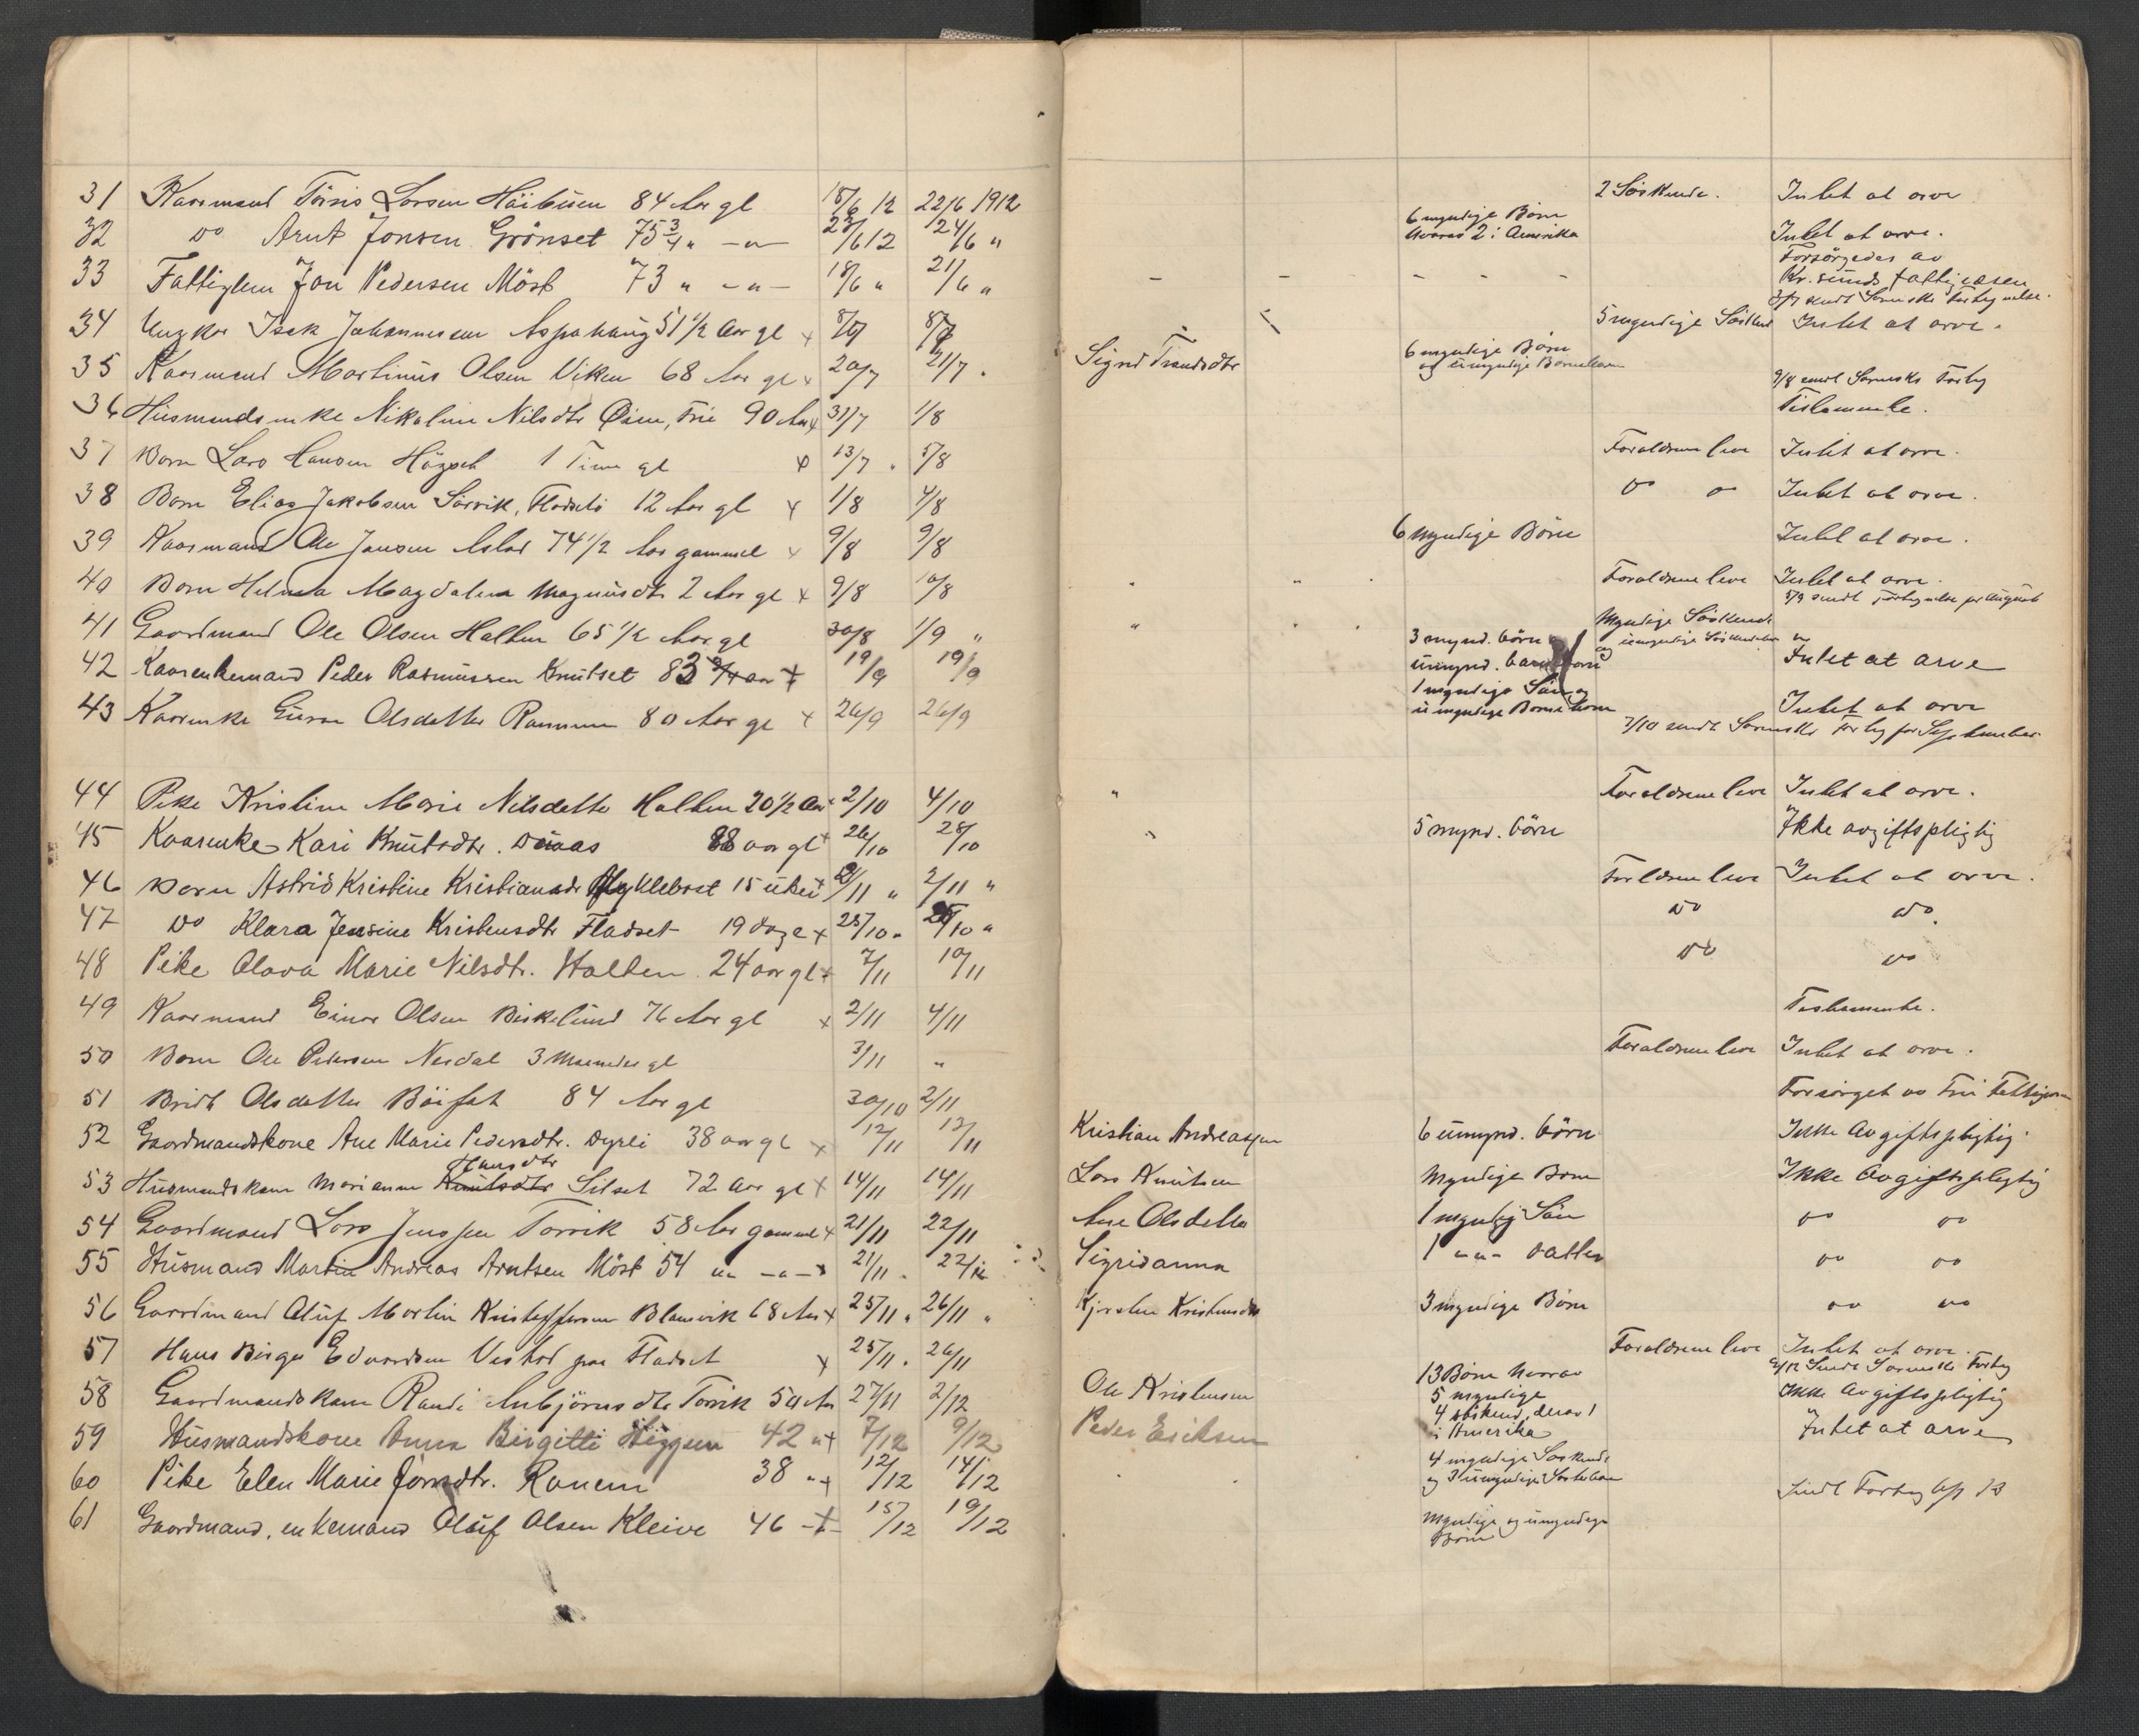 31 Kaarmand Larsen 84 Aar gl 18/6 12 22/6 1912 2 Söskende. Intet at arve
32 Do Arnt Jonsen Grönset 75 3/4 " -"- 23/6 12 24/6 " 6 myndige Börn Intet at arve.
hvorav 2 i Amerika Forsörgedes av
33 Fattiglem Jon Pedersen Möst 73 " -"- 18/6 " 21/6 " - - - - - Kr.sunds fattigvæsen
3/7 sendt Fortegnelse.
34 Ungkar Isak Johannessen Aspahaug 51 1/2 Aar gl x 8/7 5 myndige Söskend Intet at arve.
35 Kaarmand Martinus Olsen Viken 68 Aar gl x 20/7 21/7. Sigrid Trondsdtr 6 myndige Börn
og umyndige Börnebörn
9/8 sendt Forteg
36 Husmandsenke Nikoline Nilsdtr Öien, Frei 90 Aar x 31/7 1/8 Testamente.
37 Barn Lars Hansen 1 Time gl 13/7 " 5/8 Forældrene leve Intet at arve.
38 Barn Elias Jakobsen Sörvik, 12 Aar gl x 1/8 4/8 Do Do Intet at arve.
39 Kaarmand Ole Jonsen 74 1/2 Aar gammel x 9/8 9/8 6 myndige Börn Intet at arve.
40 Barn Helma Magdalena Magnusdtr 2 Aar gl x 9/8 10/8 " " Forældrene leve Intet at arve.
5/9 sendt Fortegnelse for August
41 Gaardmand Ole Olsen Halten 65 1/2 Aar gl 30/8 1/9 " " Myndige Söskende
og umyndige Söskendebørn
3 mynd. börn
42 Kaarenkemand Peder Rasmussen Knutset 83 aar x 19/9 19/9 umynd. Intet at arve
1 myndige Sön og
43 Kaarenke Guron Olsdatter 80 Aar gl x 26/9 26/9 umyndige Börnebörn Intet at arve
7/10 sendt Forteg for September
44 Pike Kristine Marie Nilsdatter Halten 20 1/2 Aar 2/10 4/10 " Forældrene leve Intet at arve.
45 Kaarenke Kari Knutsdtr. 88 aar gl x 26/10 28/10 " 5 mynd. börn Ikke avgiftspligtig
46 Barn Astrid Kristine Kristiansdr Myklebost 15 uker 2/11 " 2/11 " Forældrene leve Intet at arve.
47 Do Klara Jensine Kristensdtr Fladset 19 dage x /10 " /10 " Do Do.
48 Pike Olava Marie Nilsdtr. Halten 24 aar gl x 7/11 10/11 Do Do
49 Kaarmand Einar Olsen Birkelund 76 Aar gl x 2/11 4/11 Testamente.
50 Barn Ole Petersen Nesdal 3 Maaneder gl 3/11 " Forældrene leve Intet at arve.
51 Bridt Olsdatter Böifot 84 Aar gl 30/10 2/11 Forsörget av Frei
52 Gaardmandskone Ane Marie Pedersdtr. Dyrli 38 aar gl x 12/11 12/11 Kristian Andreassen 6 umynd. börn Ikke Avgiftspligtig.
Hansdtr
53 Husmandskone Marianne Knutsdtr Silset 72 Aar gl x 14/11 14/11 Lars Knutsen Myndige Börn Ikke Avgiftspligtig
54 Gaardmand Lars Jenssen Torvik 58 Aar gammel x 21/11 22/11 Ane Olsdatter 1 myndig Sön Do Do
55 Husmand Martin Andreas Arntsen Möst 54 "" -"- x 21/11. 22/11 Sigridanna 1 -"- Datter Do Do
56 Gaardmand Oluf Martin Kristoffersen Blamvik 68 Aar x 25/11 " 26/11 " Kjersten Kristensdtr 3 myndige Börn Do Do
57 Hans Birger Edvardsen paa Fladset x 25/11. 26/11 Forældrene leve Intet at arve.
2/12 Sendt Forteg
58 Gaardmandskone Randi Anbjörnsdtr Torvik 50 Aar 27/11 2/12 Ole Kristensen 13 Börn hvorav
5 myndige Ikke Avgiftspligtig
59 Husmandskone Anna Birgitte Higgem 42 " x 7/12 9/12 Peder Eriksen 4 söskend, derav 1
i Amerika Intet at arve
60 Pike Elen Marie Jörnsdtr. Ranem 38 " x 12/12 14/12 4 myndige Söskende
og 3 umyndige Sendt Forteg 13
61 Gaardmand, enkemand Oluf Olsen Kleive 46 -x- 15/12 19/12 Myndige og umyndige
Börn